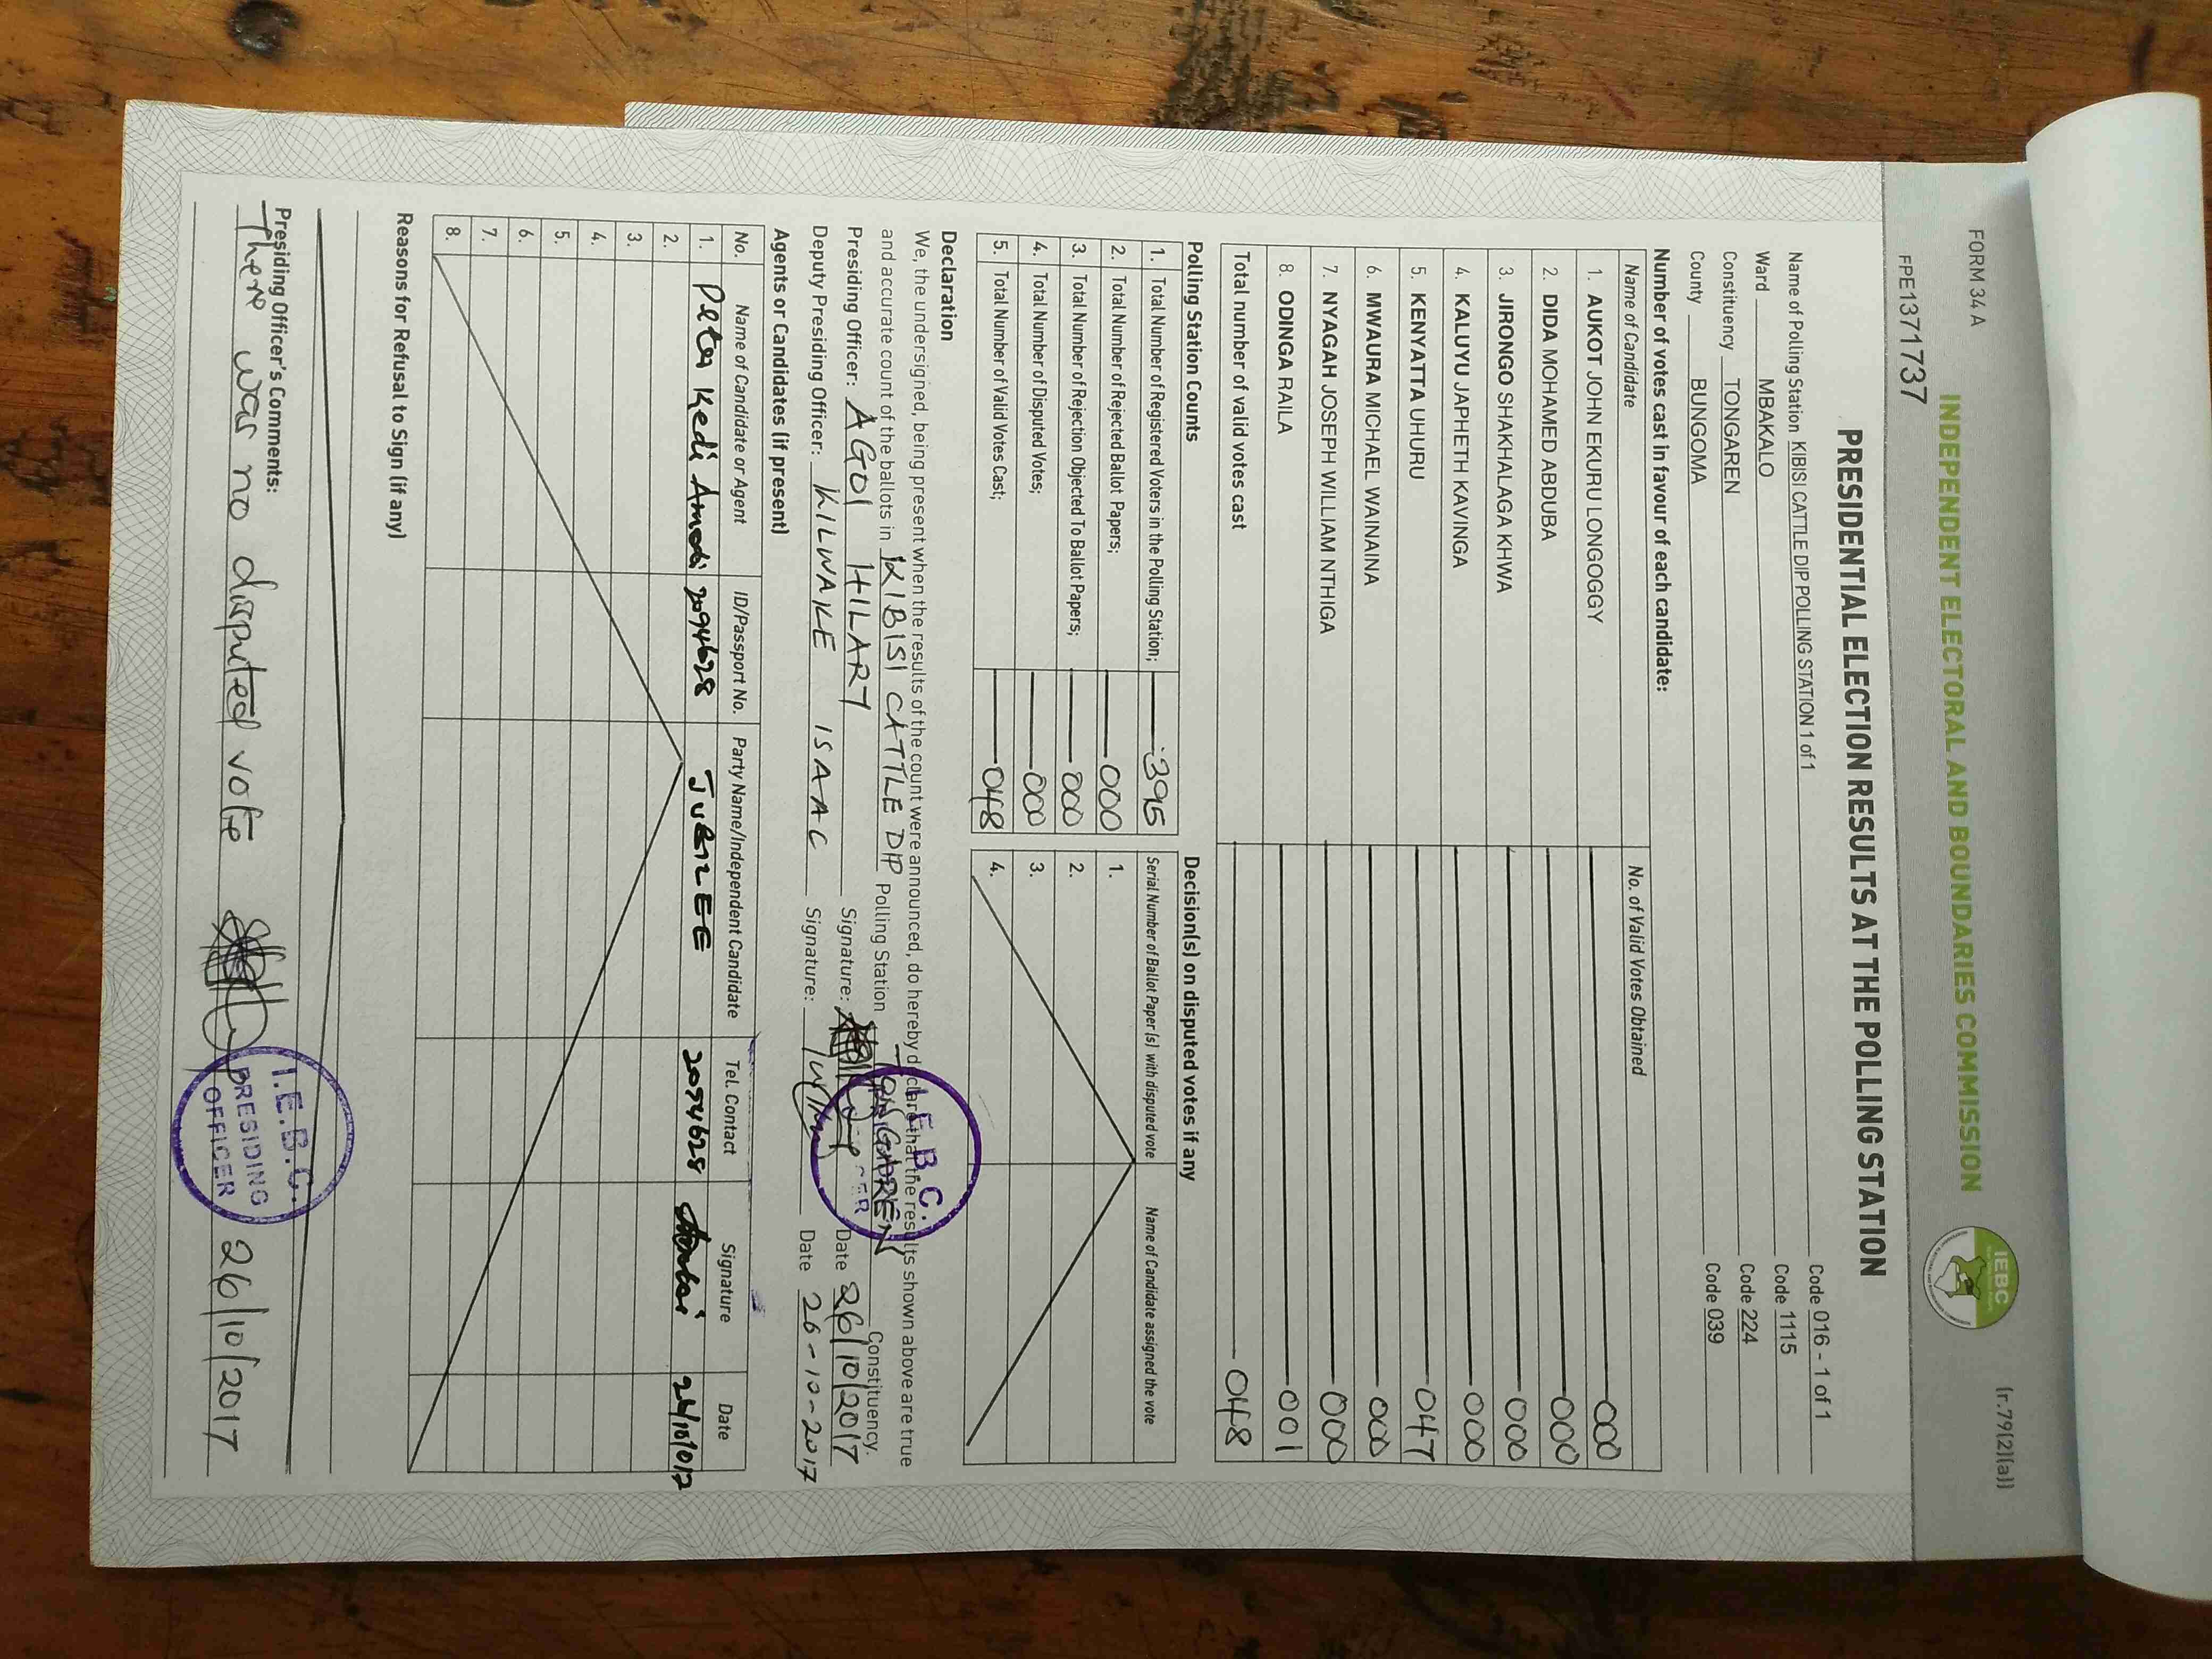 FORM 34 A
INDEPENDENT ELECTORAL AND BOUNDARIES COMMISSION
IEBC
(r.79(2)(a))
FPE1371737
PRESIDENTIAL ELECTION RESULTS AT THE POLLING STATION
Name of Polling Station KIBISI CATTLE DIP POLLING STATION 1 of 1 Code 016 - 1 of 1
Ward MBAKALO Code 1115
Constituency TONGAREN Code 224
County BUNGOMA Code 039
Number of votes cast in favour of each candidate:
Name of Candidate No. of Valid Votes Obtained
1. AUKOT JOHN EKURU LONGOGGY 000
2. DIDA MOHAMED ABDUBA 000
3. JIRONGO SHAKHALAGA KHWA 000
4. KALUYU JAPHETH KAVINGA 000
5. KENYATTA UHURU 047
6. MWAURA MICHAEL WAINAINA 000
7. NYAGAH JOSEPH WILLIAM NTHIGA 000
8. ODINGA RAILA 001
Total number of valid votes cast 048
Polling Station Counts
1. Total Number of Registered Voters in the Polling Station; 395
2. Total Number of Rejected Ballot Papers; 000
3. Total Number of Rejection Objected To Ballot Papers; 000
4. Total Number of Disputed Votes; 000
5. Total Number of Valid Votes Cast; 048
Decision(s) on disputed votes if any
Serial Number of Ballot Paper (s) with disputed vote Name of Candidate assigned the vote
1.
2.
3.
4.
Declaration
We, the undersigned, being present when the results of the count were announced, do hereby declare that the results shown above are true
and accurate count of the ballots in KIBISI CATTLE DIP Polling Station TONGAREN Constituency.
Presiding Officer: AGOI HILARY Signature: Date 26/10/2017
Deputy Presiding Officer: KILWAKE ISAAC Signature: Date 26-10-2017
I.E.B.C.
Agents or Candidates (if present)
No. Name of Candidate or Agent ID/Passport No. Party Name/Independent Candidate Tel. Contact Signature Date
1. Peter Kedi 2094628 JUBILEE 2094628
2.
3.
4.
5.
6.
7.
8.
Reasons for Refusal to Sign (if any)
Presiding Officer's Comments:
There was no disputed vote 26/10/2017
I.E.B.C.
PRESIDING
OFFICER